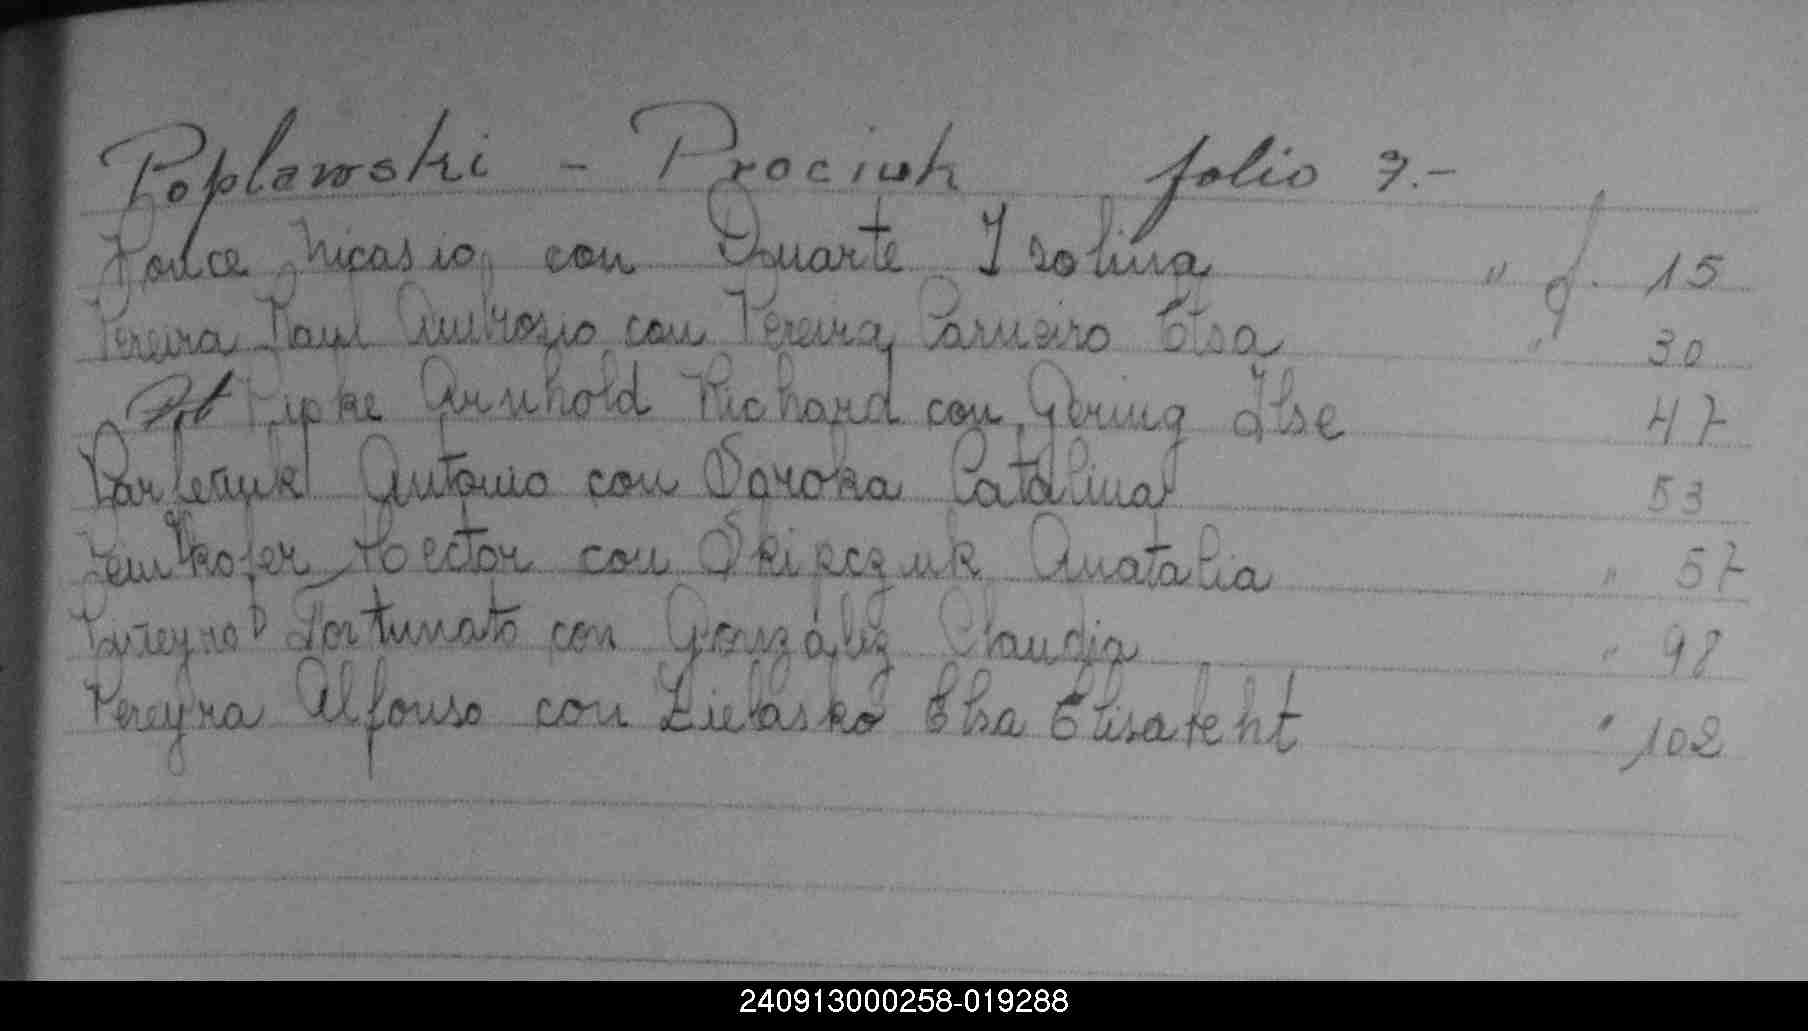 Poplawski - Prociuk folio 7.-
Ponce Nicasio con Duarte Isolina " f. 15
Pereira Raul Ambrosio con Pereira Carneiro Elsa " 30
Pipke Arnhold Richard con Göring Ilse 47
Antonio con Soroka Catalina 53
Hector con Skipczuk Anatalia " 57
Fortunato con González Claudia " 98
Pereyra Alfonso con Zielasko Elsa Elisabeht " 102
240913000258-019288